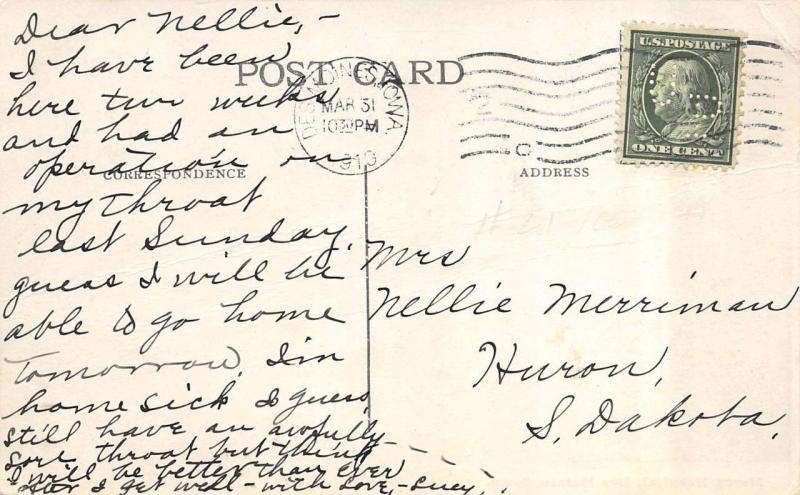 Dear Nellie,-
I have been
here two weeks
and had an
operation on
my throat
last Sunday.
guess I will be
able to go home
tomorrow. I'm
home sick I guess,
still have an awfully
sore throat but think
I will be better than ever
after I get well - with love, - Lucy.
POST CARD
DES MOINES, IOWA
MAR 31
10 30 PM
1910
U.S. POSTAGE
ONE CENT
CORRESPONDENCE
ADDRESS
Mrs
Nellie Merriman
Huron,
S. Dakota.